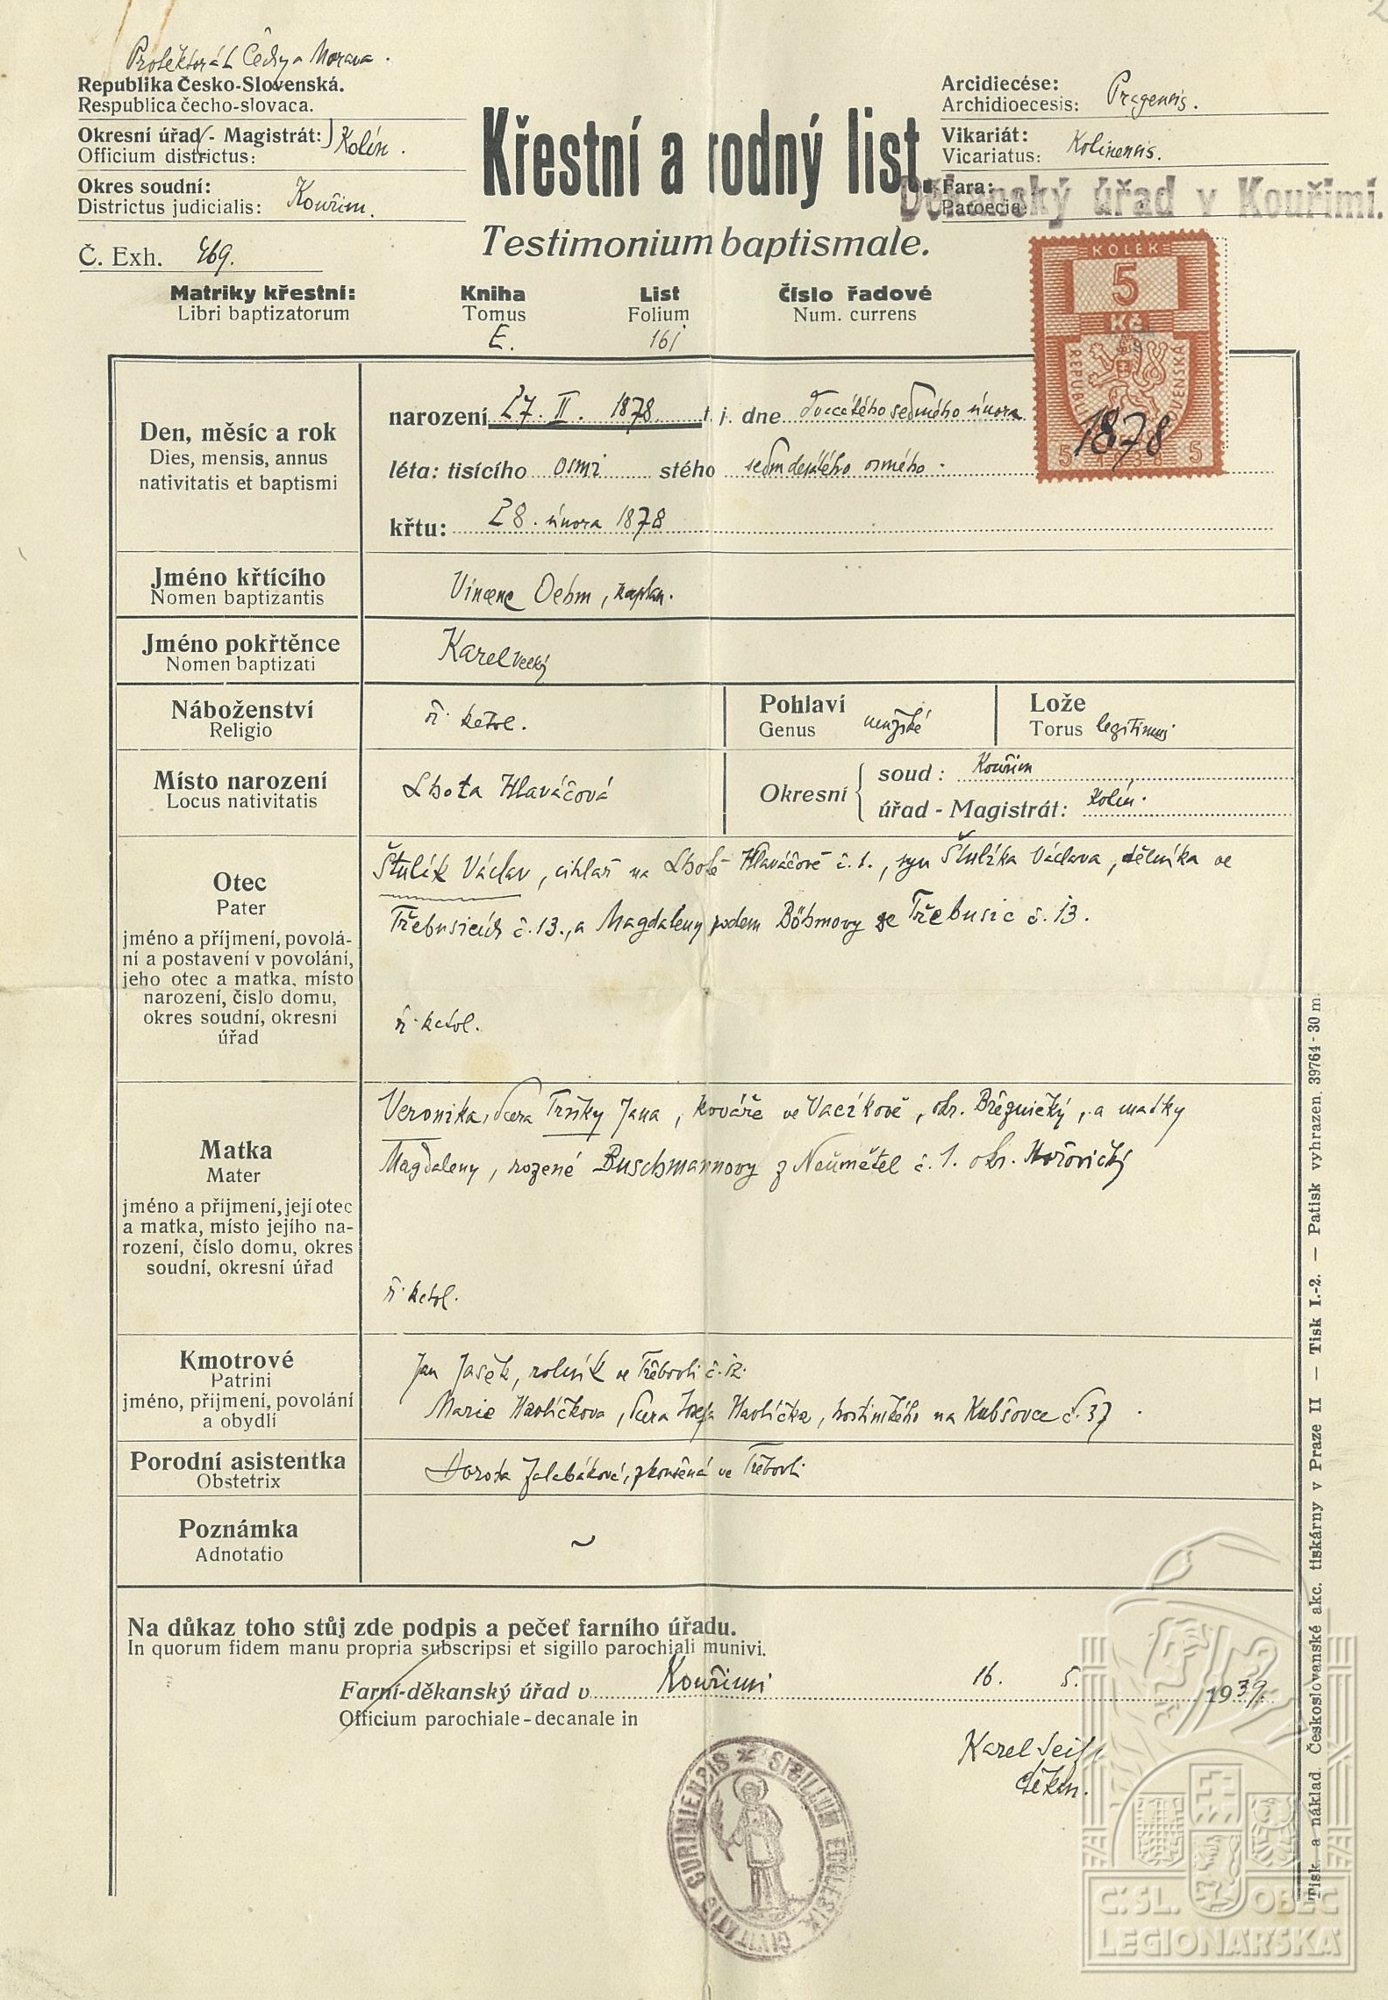 Protektorát Čechy a Morava.
Republika Česko-Slovenská.
Respublica čecho-slovaca.
Okresní úřad - Magistrát: Kolín.
Officium districtus:
Okres soudní: Kouřim.
Districtus judicialis:
Č. Exh. 469.
Křestní a rodný list.
Testimonium baptismale.
Arcidiecése: Pragensis.
Archidioecesis:
Vikariát: Kolinensis.
Vicariatus:
Fara:
Paroecia:
Děkanský úřad v Kouřimi.
KOLEK
5
Kč
REPUBLIKA
5 1938 5
1878
Matriky křestní: Kniha List Číslo řadové
Libri baptizatorum Tomus Folium Num. currens
E. 161
Den, měsíc a rok
Dies, mensis, annus
nativitatis et baptismi
narození 27. II. 1878. t. j. dne dvacátého sedmého února
léta: tisícího osmi stého sedmdesátého osmého.
křtu: 28. února 1878
Jméno křtícího
Nomen baptizantis
Vincenc Oehm, kaplan.
Jméno pokřtěnce
Nomen baptizati
Karel
Náboženství
Religio
ř. katol.
Pohlaví
Genus mužské
Lože
Torus legitimus
Místo narození
Locus nativitatis
Lhota Hlaváčová
Okresní
soud: Kouřim
úřad - Magistrát: Kolín.
Otec
Pater
jméno a příjmení, povolá-
ní a postavení v povolání,
jeho otec a matka, místo
narození, čislo domu,
okres soudní, okresní
úřad
Štulík Václav, cihlář na Lhotě Hlaváčově č. 1., syn Štulíka Václava, dělníka ve
Třebusicích č. 13., a Magdaleny rodem Böhmovy ze Třebusic č. 13.
ř. katol.
Matka
Mater
jméno a příjmení, její otec
a matka, místo jejího na-
rození, číslo domu, okres
soudní, okresní úřad
Veronika, dcera Jana, kováře ve Vacíkově, okr. Březnický, a matky
Magdaleny, rozené Buschmannovy z Neumětel č. 1. okr. Hořovický
ř. katol.
Kmotrové
Patrini
jméno, příjmení, povolání
a obydlí
Jan rolník ve Třebovli č. 12.
Marie Havlíčkova, dcera Josefa Havlíčka, hostinského na č. 37.
Porodní asistentka
Obstetrix
Dorota zkoušená ve Třebovli
Poznámka
Adnotatio
~
Na důkaz toho stůj zde podpis a pečeť farního úřadu.
In quorum fidem manu propria subscripsi et sigillo parochiali munivi.
Farní-děkanský úřad v Kouřimi 16. 5. 1939.
Officium parochiale-decanale in
Karel
děkan.
SIGILLUM ECCLESIÆ CIVITATIS CURIMIENSIS
Tisk a náklad Československé akc. tiskárny v Praze II — Tisk I.-2. — Patisk vyhrazen. 39764 - 30 m.
Č. SL. OBEC
LEGIONÁŘSKÁ